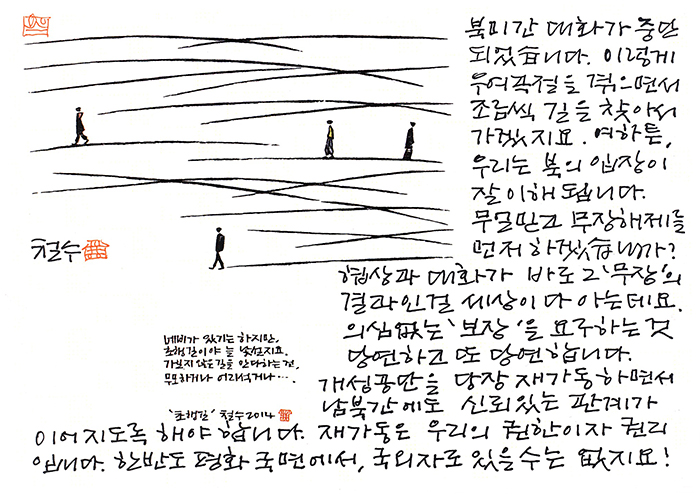 북미간 대화가 중단
되었습니다. 이렇게
우여곡절을 겪으면서
조금씩 길을 찾아서
가겠지요. 여하튼,
우리는 북의 입장이
잘 이해 됩니다.
무얼믿고 무장해제를
먼저 하겠습니까?
철수
협상과 대화가 바로 그 '무장'의
결과인걸 세상이 다 아는데요.
의심없는 '보장'을 요구하는 것
당연하고 또 당연합니다.
개성공단을 당장 재가동하면서
남북간에도 신뢰있는 관계가
네비가 있기는 하지만,
초행길이야 늘 낯설지요.
가보지 않은길을 안다하는건,
무모하거나 어리석거나….
'초행길' 철수2014
이어지도록 해야 합니다. 재가동은 우리의 권한이자 권리
입니다. 한반도 평화 국면에서, 국외자로 있을 수는 없지요!